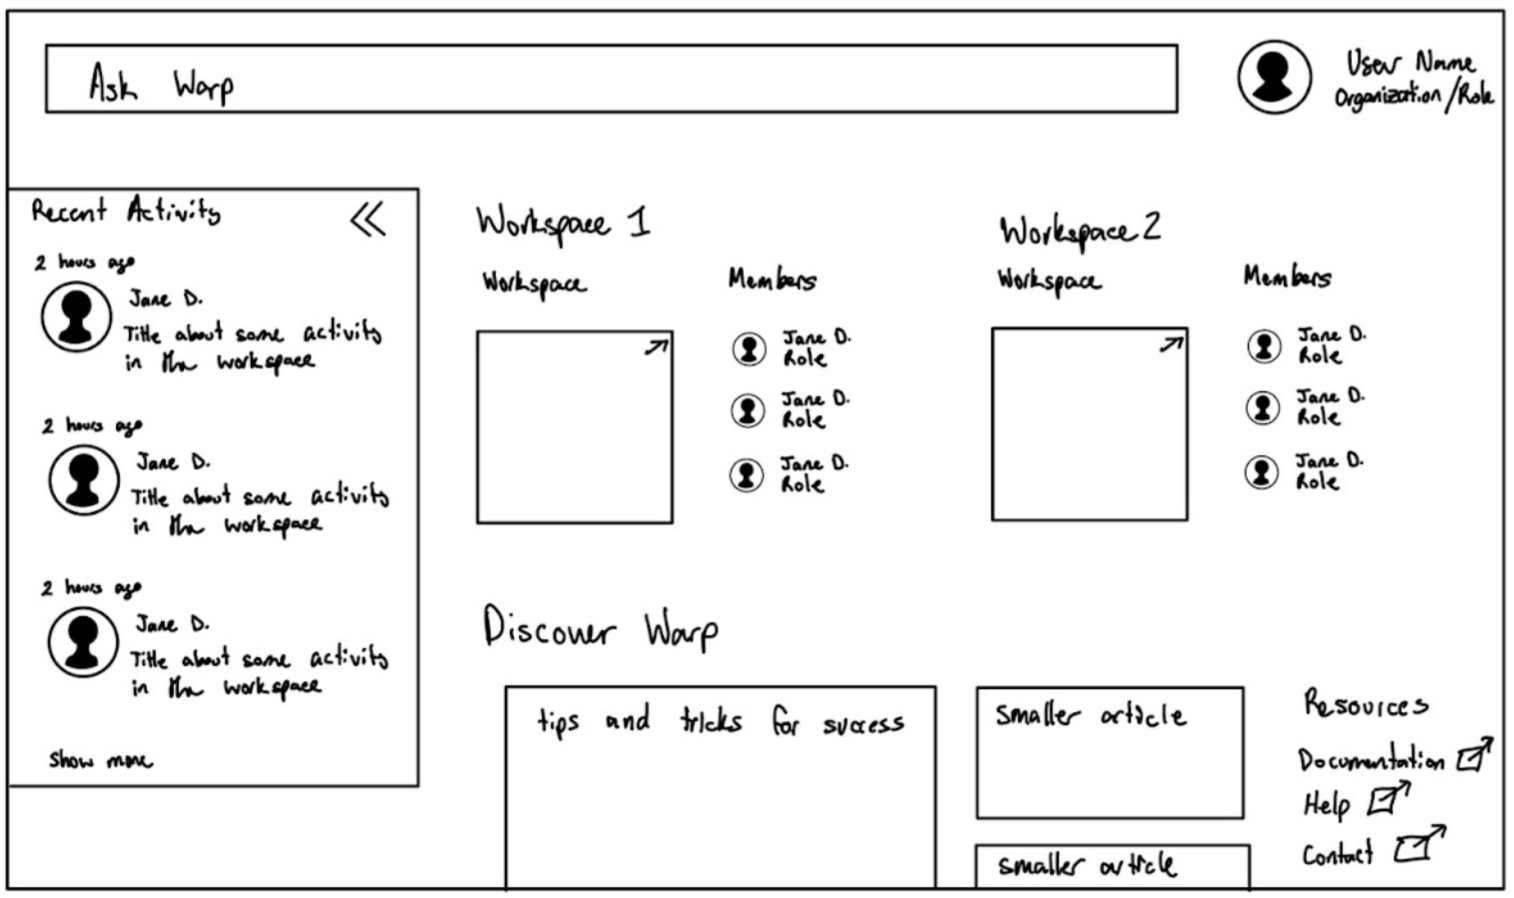 Ask Warp
User Name
Organization/Role
Recent Activity
2 hours ago
Jane D.
Title about some activity
in the workspace
2 hours ago
Jane D.
Title about some activity
in the workspace
2 hours ago
Jane D.
Title about some activity
in the workspace
Show more
Workspace 1
Workspace
Members
Jane D.
Role
Jane D.
Role
Jane D.
Role
Workspace 2
Workspace
Members
Jane D.
Role
Jane D.
Role
Jane D.
Role
Discover Warp
tips and tricks for success
smaller article
smaller article
Resources
Documentation
Help
Contact